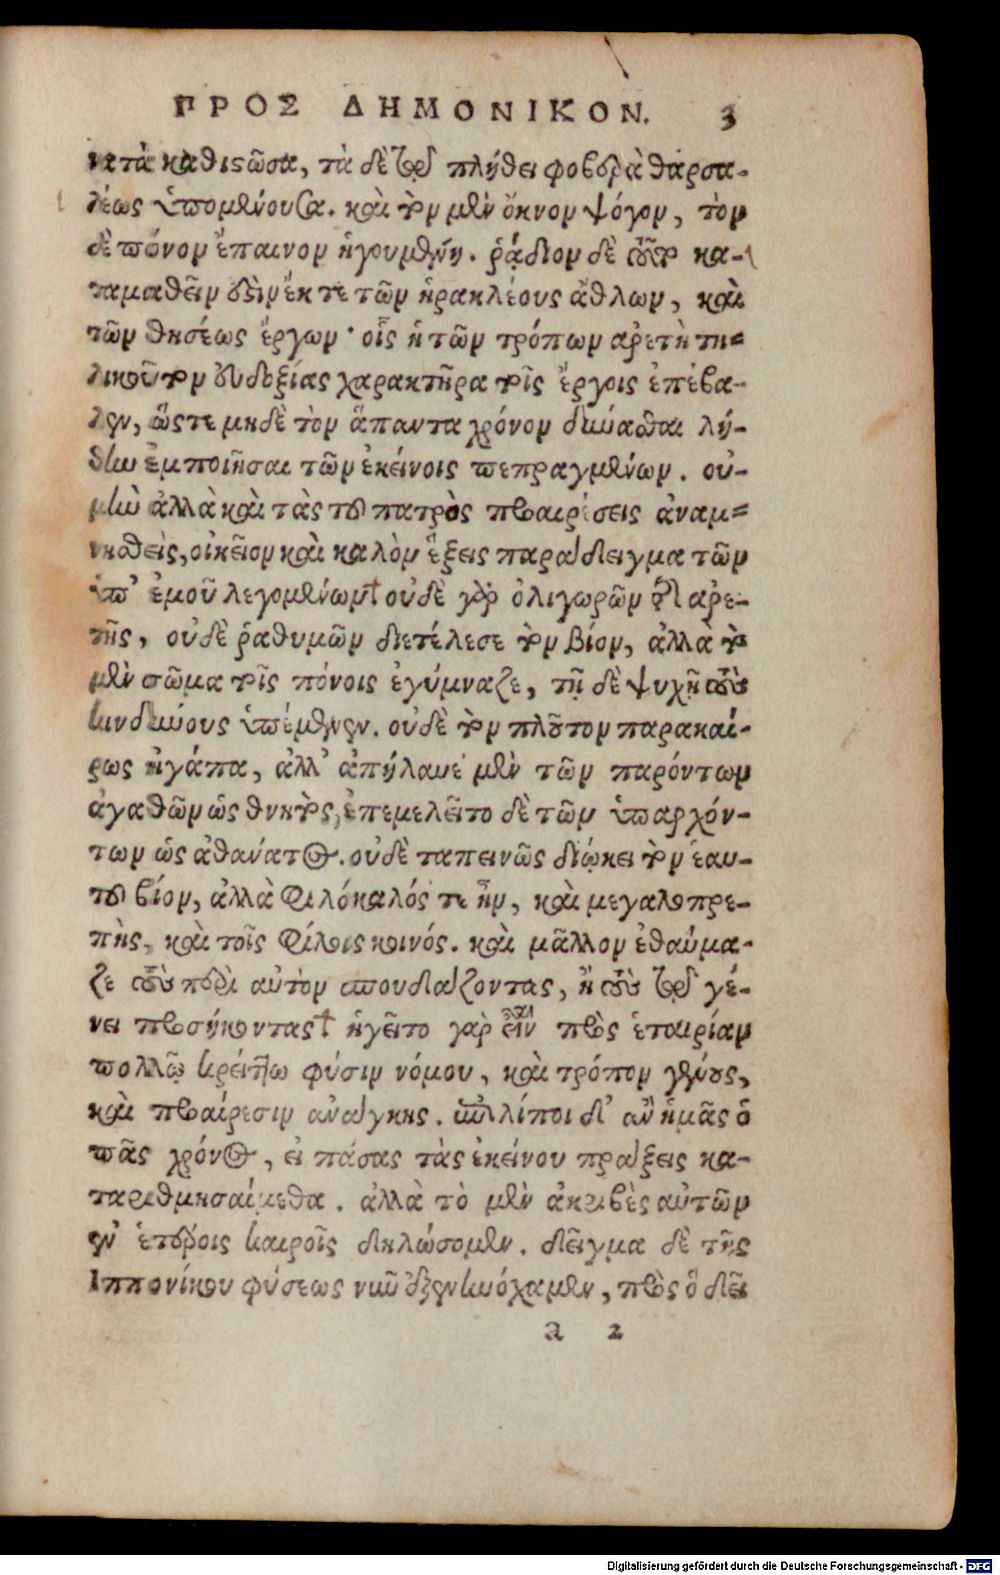 ΠΡΟΣ ΔΗΜΟΝΙΚΟΝ. 3
νατὰ καθιστῶσα, τὰ δὲ τῷ πλήθει φοβερὰ θαρσα-
λέως ὑπομένουσα. καὶ τὸν μὲν ὄκνον ψόγον, τὸν
δὲ πόνον ἔπαινον ἡγουμένη. ῥᾴδιον δὲ τοῦτο κα-
ταμαθεῖν ἐστὶν ἔκ τε τῶν ἡρακλέους ἄθλων, καὶ
τῶν θησέως ἔργων· οἷς ἡ τῶν τρόπων ἀρετὴ τη=
λικοῦτον εὐδοξίας χαρακτῆρα τοῖς ἔργοις ἐπέβα-
λεν, ὥστε μηδὲ τὸν ἅπαντα χρόνον δύνασθαι λή-
θην ἐμποιῆσαι τῶν ἐκείνοις πεπραγμένων. οὐ-
μὴν ἀλλὰ καὶ τὰς τοῦ πατρὸς προαιρέσεις ἀναμ=
νησθεὶς, οἰκεῖον καὶ καλὸν ἕξεις παράδειγμα τῶν
ὑπ' ἐμοῦ λεγομένων† οὐδὲ γὰρ ὀλιγωρῶν τῆς ἀρε-
τῆς, οὐδὲ ῥαθυμῶν διετέλεσε τὸν βίον, ἀλλὰ τὸ
μὲν σῶμα τοῖς πόνοις ἐγύμναζε, τῇ δὲ ψυχῇ τοὺς
κινδύνους ὑπέμενεν. οὐδὲ τὸν πλοῦτον παρακαί-
ρως ἠγάπα, ἀλλ' ἀπήλαυε μὲν τῶν παρόντων
ἀγαθῶν ὡς θνητὸς, ἐπεμελεῖτο δὲ τῶν ὑπαρχόν-
των ὡς ἀθάνατος. οὐδὲ ταπεινῶς διῴκει τὸν ἑαυ-
τοῦ βίον, ἀλλὰ φιλόκαλός τε ἦν, καὶ μεγαλοπρε-
πὴς, καὶ τοῖς φίλοις κοινός. καὶ μᾶλλον ἐθαύμα-
ζε τοὺς περὶ αὐτὸν σπουδάζοντας, ἢ τοὺς τῷ γέ-
νει προσήκοντας† ἡγεῖτο γὰρ εἶναι πρὸς ἑταιρίαν
πολλῷ κρείττω φύσιν νόμου, καὶ τρόπον γένους,
καὶ προαίρεσιν ἀνάγκης. ἐπιλίποι δ' ἂν ἡμᾶς ὁ
πᾶς χρόνος, εἰ πάσας τὰς ἐκείνου πράξεις κα-
ταριθμησαίμεθα. ἀλλὰ τὸ μὲν ἀκριβὲς αὐτῶν
ἐν ἑτέροις καιροῖς δηλώσομεν. δεῖγμα δὲ τῆς
Ιππονίκου φύσεως νῦν ἐξενηνόχαμεν, πρὸς ὃ δεῖ
a 2
Digitalisierung gefördert durch die Deutsche Forschungsgemeinschaft - DFG